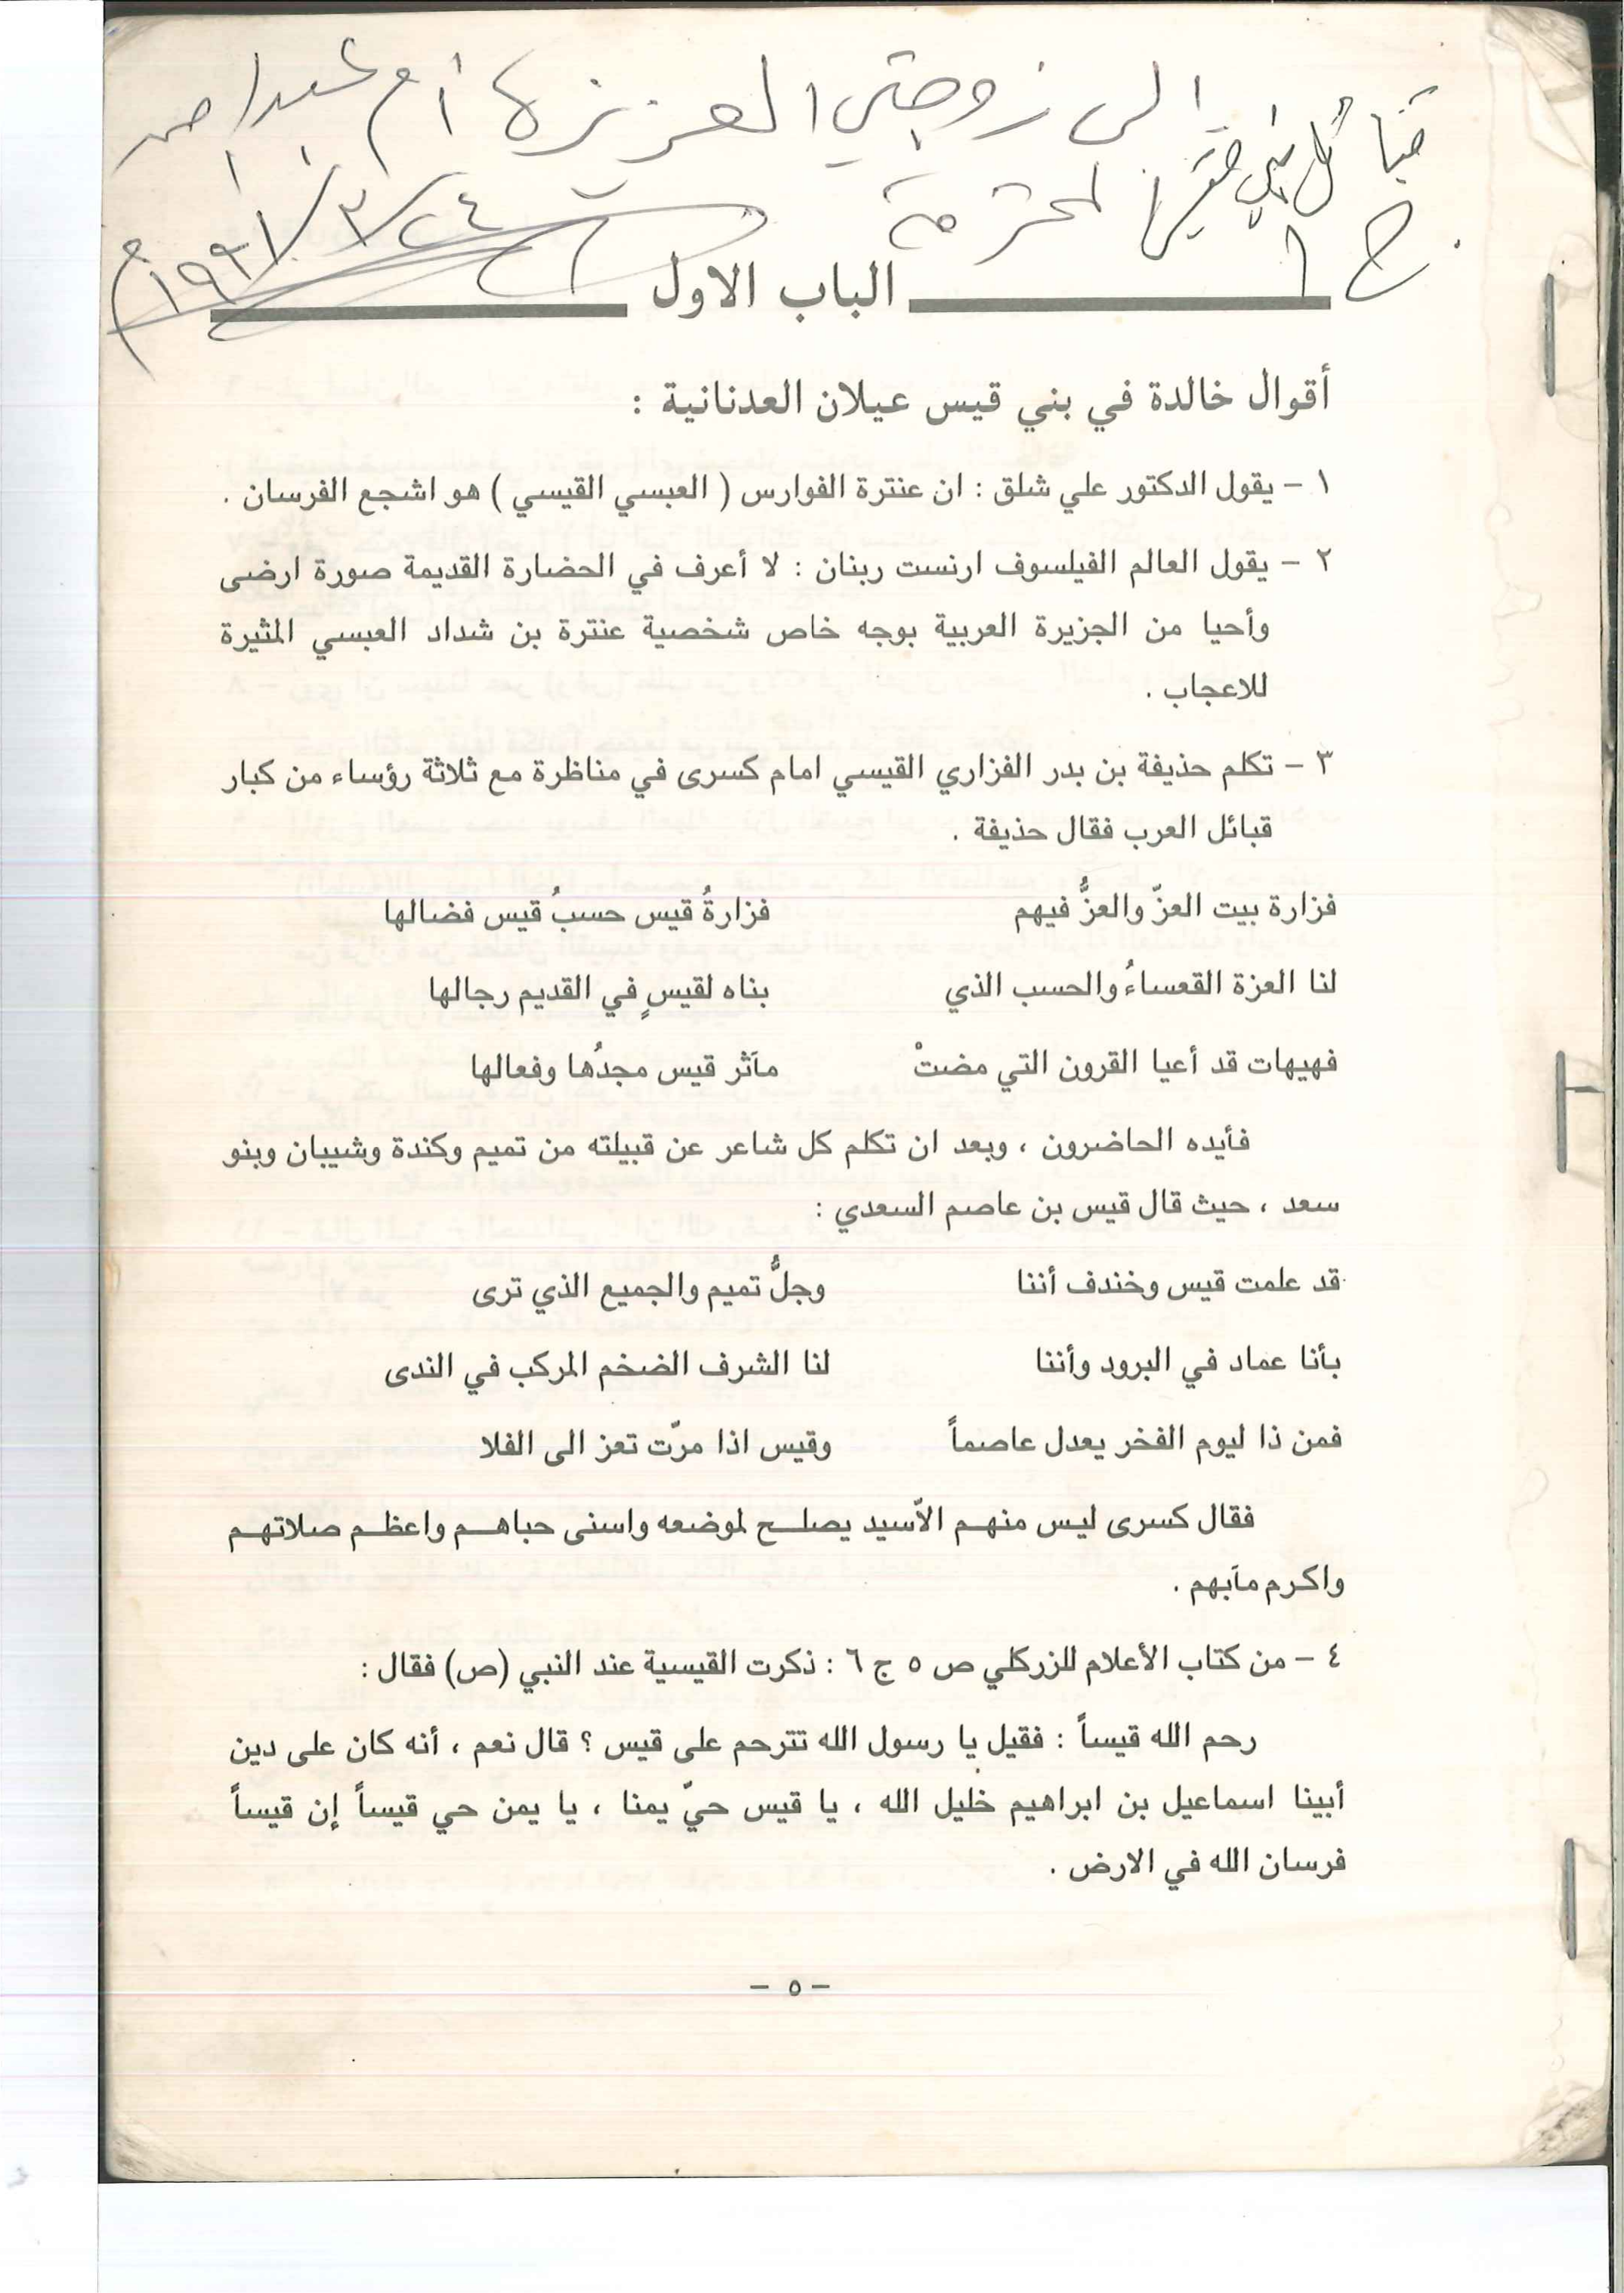 الى زوجتي العزيزة أم
المحترمة
١٩٩١/٣/٢٤ م
ج ١
الباب الاول
أقوال خالدة في بني قيس عيلان العدنانية :
١ – يقول الدكتور علي شلق : ان عنترة الفوارس ( العبسي القيسي ) هو اشجع الفرسان .
٢ – يقول العالم الفيلسوف ارنست رينان : لا أعرف في الحضارة القديمة صورة ارضى
وأحيا من الجزيرة العربية بوجه خاص شخصية عنترة بن شداد العبسي المثيرة
للاعجاب .
٣ – تكلم حذيفة بن بدر الفزاري القيسي امام كسرى في مناظرة مع ثلاثة رؤساء من كبار
قبائل العرب فقال حذيفة .
فزارة بيت العزّ والعزُّ فيهم فزارةُ قيس حسبُ قيس فضالها
لنا العزة القعساءُ والحسب الذي بناه لقيسٍ في القديم رجالها
فهيهات قد أعيا القرون التي مضتْ مآثر قيس مجدُها وفعالها
فأيده الحاضرون ، وبعد ان تكلم كل شاعر عن قبيلته من تميم وكندة وشيبان وبنو
سعد ، حيث قال قيس بن عاصم السعدي :
قد علمت قيس وخندف أننا وجلُّ تميم والجميع الذي ترى
بأنا عماد في البرود وأننا لنا الشرف الضخم المركب في الندى
فمن ذا ليوم الفخر يعدل عاصماً وقيس اذا مرّت تعز الى الفلا
فقال كسرى ليس منهم الاّسيد يصلح لموضعه واسنى حباهم واعظم صلاتهم
واكرم مآبهم .
٤ – من كتاب الأعلام للزركلي ص ٥ ج ٦ : ذكرت القيسية عند النبي (ص) فقال :
رحم الله قيساً : فقيل يا رسول الله تترحم على قيس ؟ قال نعم ، أنه كان على دين
أبينا اسماعيل بن ابراهيم خليل الله ، يا قيس حيّ يمنا ، يا يمن حي قيساً إن قيساً
فرسان الله في الارض .
– ٥ –